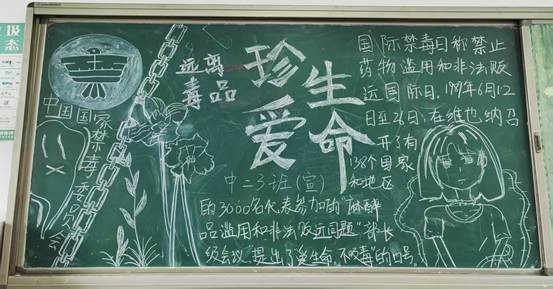 远离
毒品
珍
爱
生
命
中国国家禁毒委员会
国际禁毒日称禁止
药物滥用和非法贩
运国际日,1987年6月12
日至26日,在维也纳召
开了有
138个国家
和地区
中二3班(宣)
的3000名代表参加的"麻醉
品滥用和非法贩运问题"部长
级会议.提出了"爱生命,不吸毒"的口号